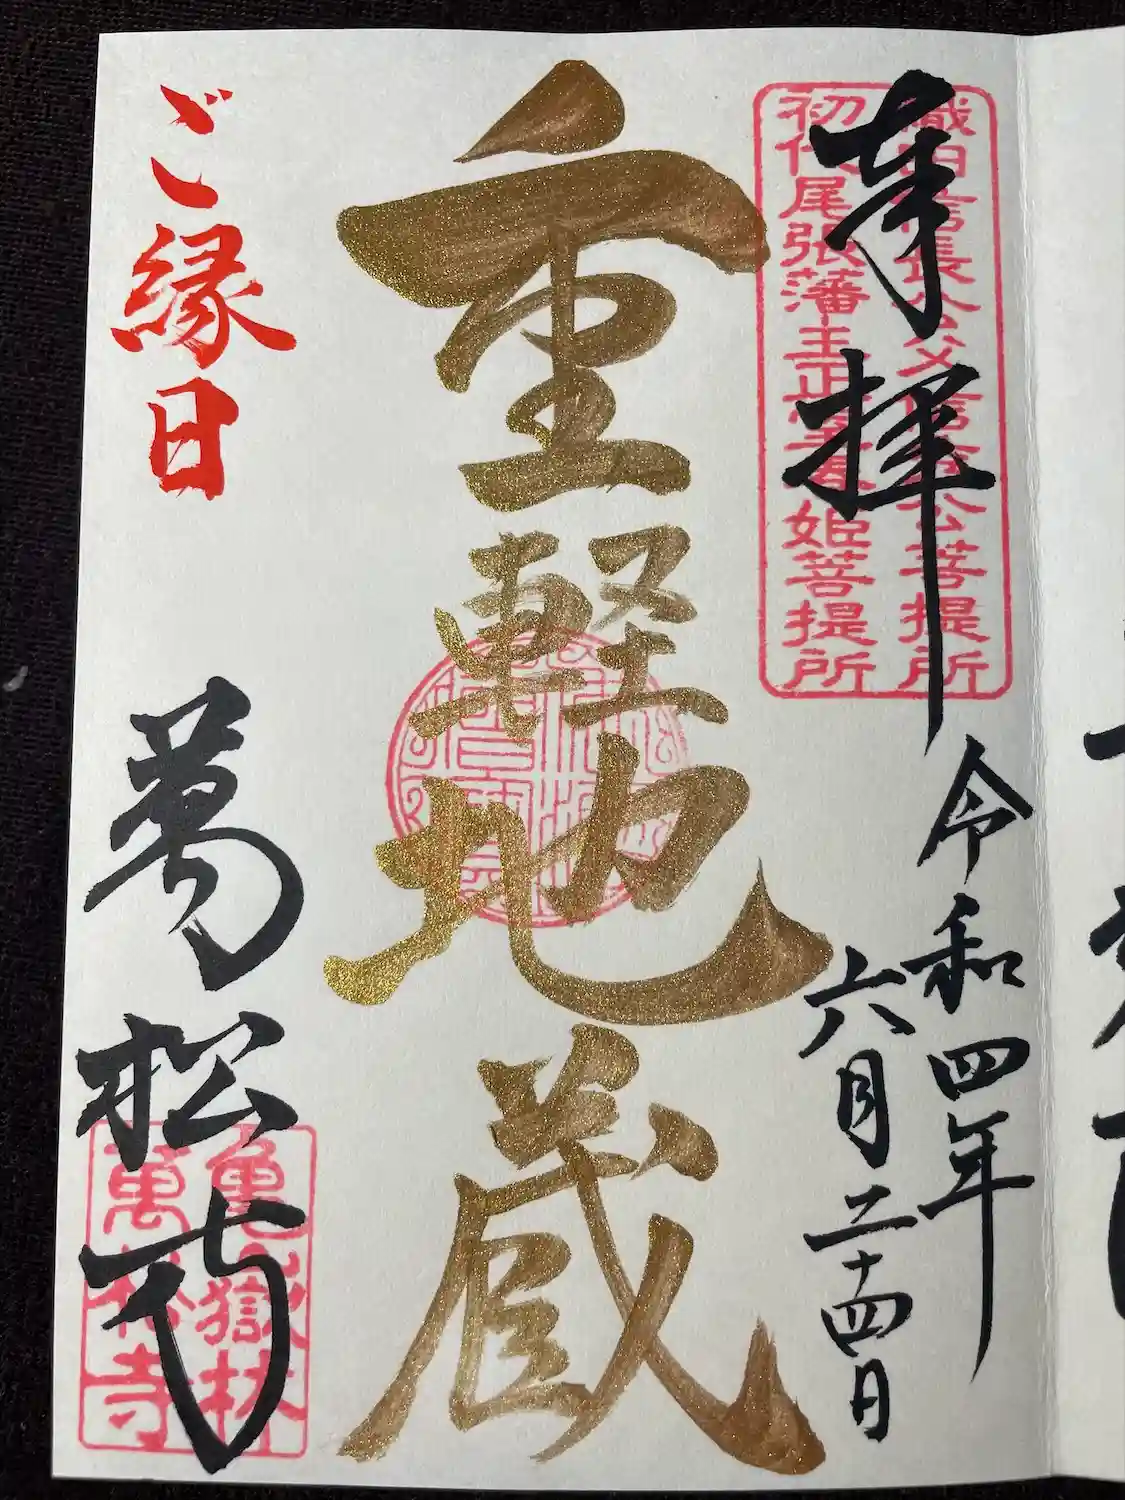 奉拝
織田信長公父信秀公菩提所
初代尾張藩主正室春姫菩提所
令和四年
六月二十四日
重軽地蔵
ご縁日
萬松寺
亀嶽林
萬松寺